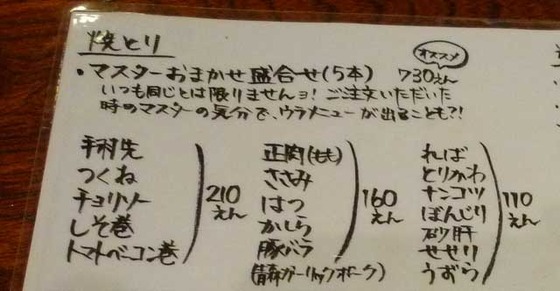 焼とり
オススメ
・マスターおまかせ盛合せ(5本) 730えん
いつも同じとは限りませんョ!ご注文いただいた
時のマスターの気分で、ウラメニューが出ることも?!
手羽先
つくね
チョリソー
しそ巻
トマトベーコン巻
210えん
正肉(もも)
ささみ
はつ
かしら
豚バラ
(青森ガーリックポーク)
160えん
ればー
とりかわ
ナンコツ
ぼんじり
砂肝
せせり
うずら
110えん